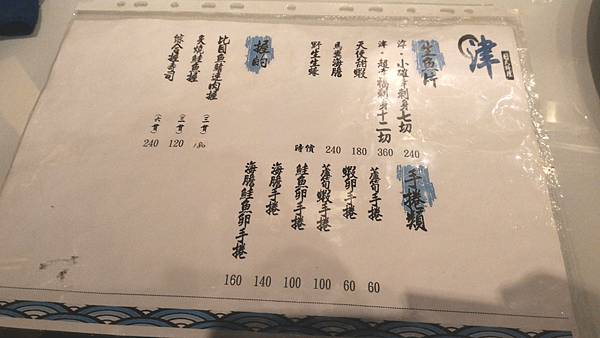 津
生魚片
津．小確幸刺身七切 240
津．超幸福刺身十二切 360
天使甜蝦 180
馬糞海膽 240
野生生蠔 時價
握的
比目魚鰭邊肉握 (二貫) 180
炙燒鮭魚握 (二貫) 120
綜合握壽司 (六貫) 240
手捲類
蘆筍手捲 60
蝦卵手捲 60
蘆筍蝦手捲 100
鮭魚卵手捲 100
海膽手捲 140
海膽鮭魚卵手捲 160